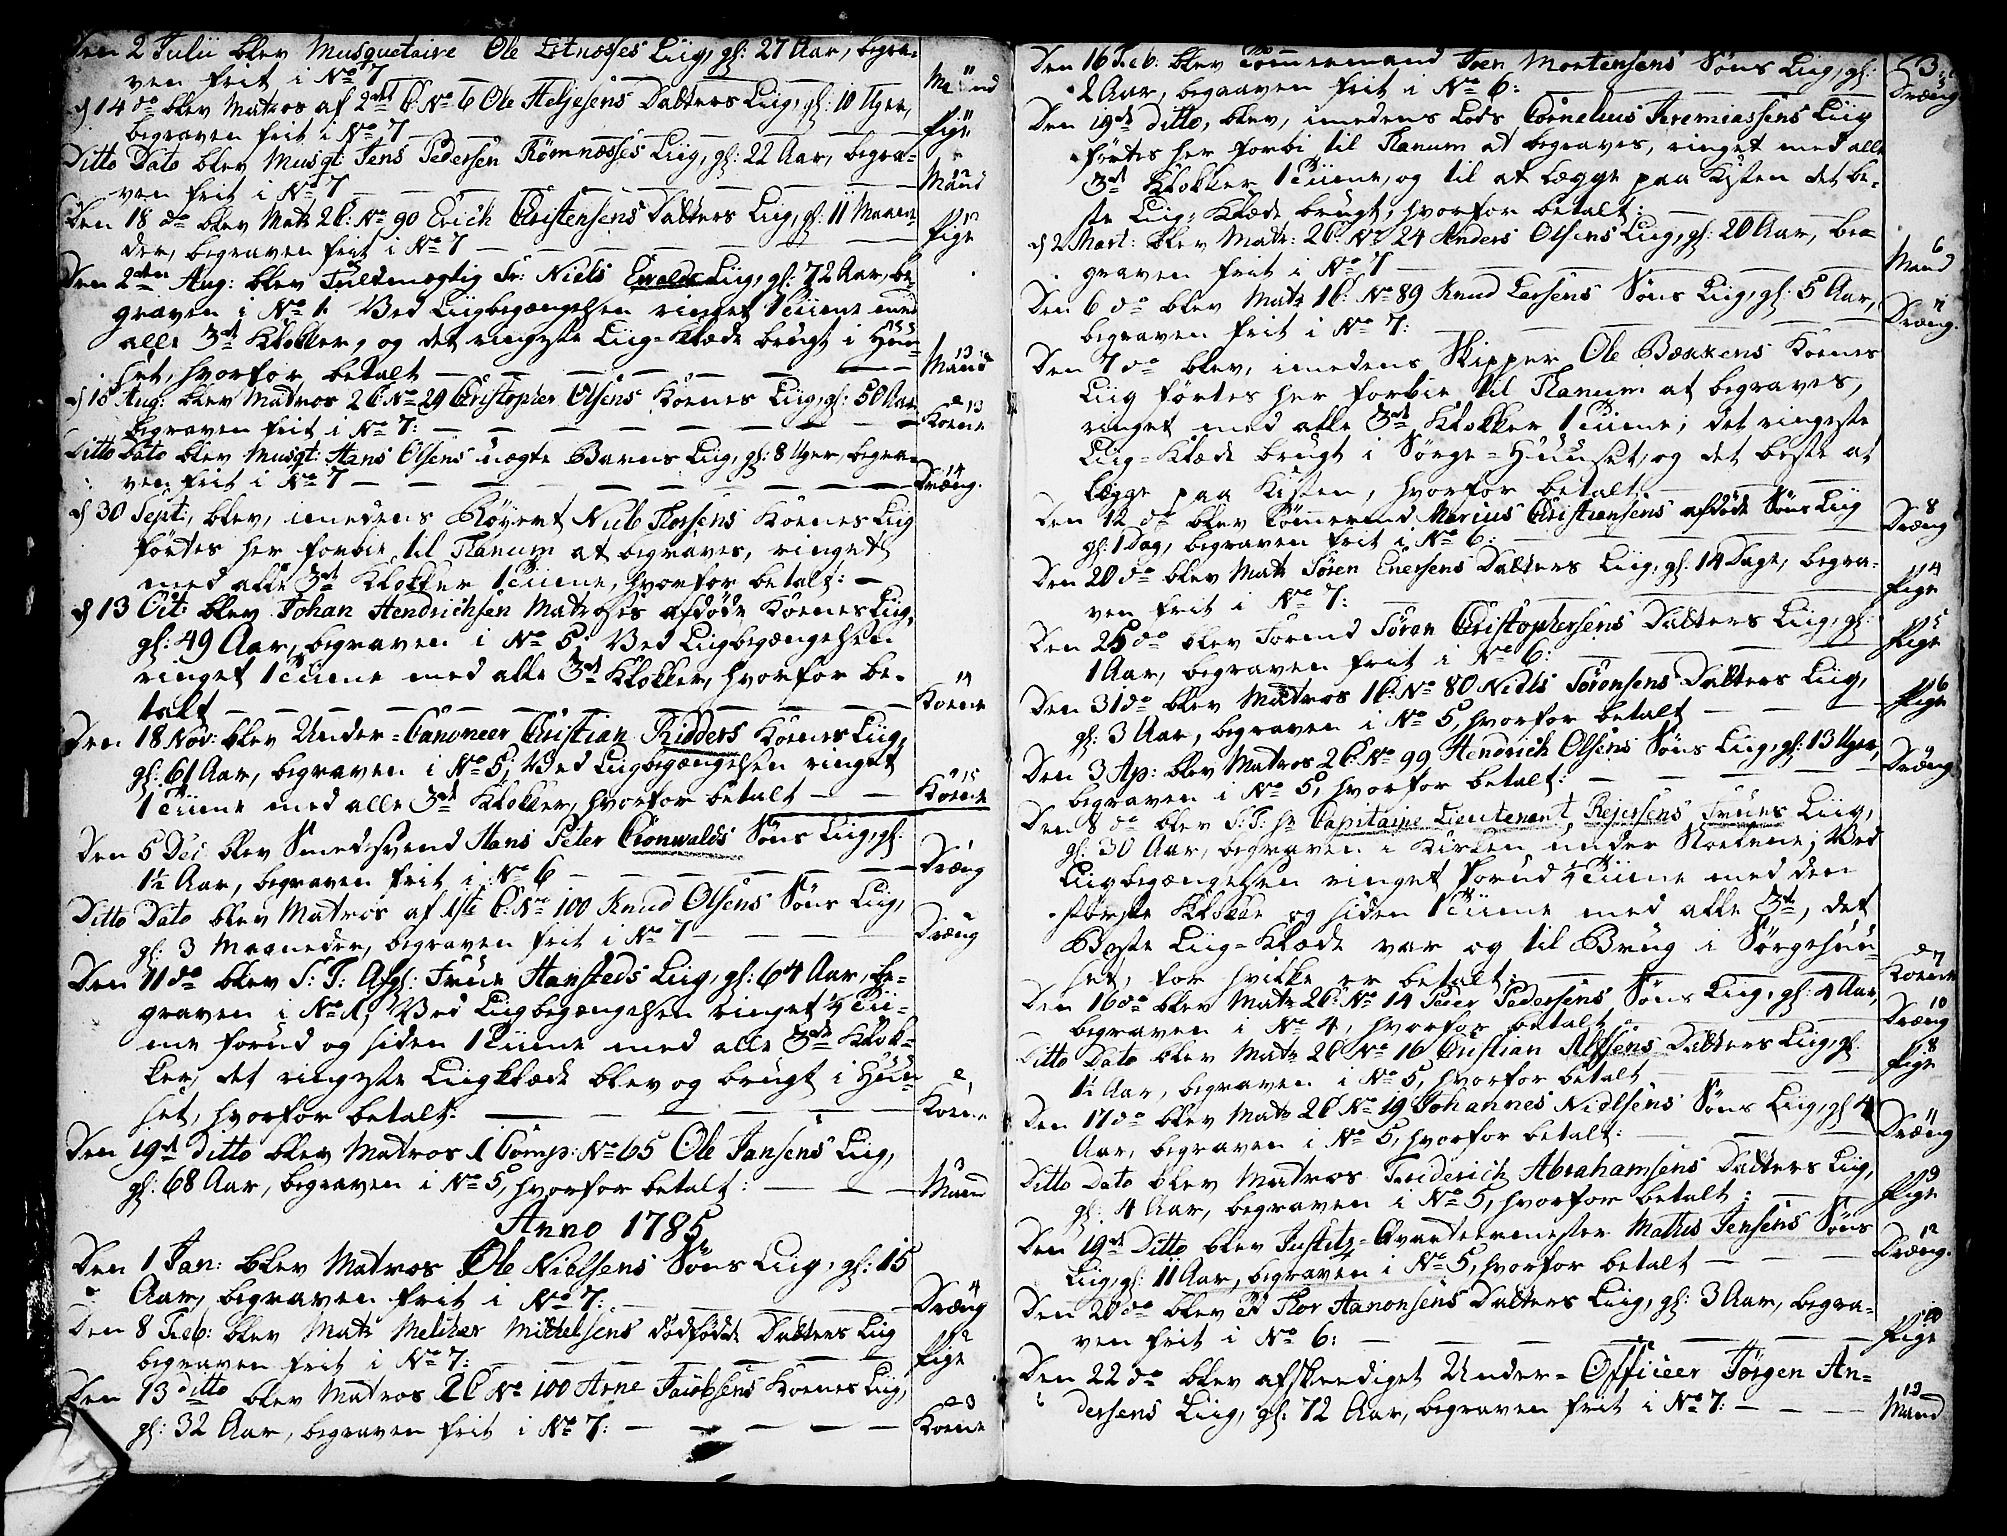 Den 2 Julii blev Musquetaire Ole Litnæsses Liig, gl: 27 Aar, begra-
ven frit i No 7 Mand 11
d 14 do blev Matros af 2det C. No 6 Ole Heljesens Datters Liig, gl: 10 Uger,
begraven frit i No 7 Pige 11
Ditto Dato blev Musqt: Jens Pedersen Rømnæsses Liig, gl: 22 Aar, begra-
ven frit i No 7 Mand 12
Den 18 do blev Matr 2 C: No 90 Erich Christensens Datters Liig, gl: 11 Maane-
der, begraven frit i No 7 Pige 12
Den 2den Aug: blev Fuldmægtig Sr: Niels Ewalds Liig, gl: 72 Aar, be-
graven i No 1. Ved Liigbegængelsen ringet 1 Tiime med
alle 3de Klokker, og det ringeste Liig-Klæde brugt i Huu-
set, hvorfor betalt Mand 13
d 18 Aug: blev Matros 2 C No 29 Christopher Olsens Kones Liig, gl: 50 Aar
begraven frit i No 7: Kone 13
Ditto Dato blev Musqt: Hans Olsens uægte Barns Liig, gl: 8 Uger, begra-
ven frit i No 7 Dræng 14
d 30 Sept: blev, imedens Røyert Niels Thorsens Kones Liig
førtes her forbie til Tlanum at begraves, ringet
med alle 3de Klokker 1 Tiime, hvorfor betalt:
d 13 Oct: blev Johan Hendrichsen Matroses afdøde Kones Liig,
gl: 49 Aar, begraven i No 5; Ved Liigbegængelsen
ringet 1 Tiime med alle 3de Klokker, hvorfor be-
talt Kone 14
Den 18 Nov: blev Under-Canoneer Christian Ridders Kones Liig,
gl: 61 Aar, begraven i No 5; Ved Liigbegængelsen ringet
1 Tiime med alle 3de Klokker, hvorfor betalt Kone 15
Den 5 Dec: blev Smedsvend Hans Peter Cronwalds Søns Liig, gl:
1½ Aar, begraven frit i No 6 Dræng 1
Ditto Dato blev Matros af 1ste C: No 100 Knud Olsens Søns Liig,
gl: 3 Maaneder, begraven frit i No 7 Dræng 2
Den 11 do blev S: T: Afgl: Frue Hansteds Liig, gl: 64 Aar, be-
graven i No 1; Ved Liigbegængelsen ringet ¼ Tii-
me forud og siden 1 Tiime med alle 3de Klok-
ker, det ringeste Liigklæde blev og brugt i Huu-
set, hvorfor betalt: Kone 1
Den 19de Ditto blev Matros 1 Comp: No 65 Ole Jansens Liig,
gl: 68 Aar, begraven i No 5, hvorfor betalt: Mand
Anno 1785
Den 1 Jan: blev Matros Ole Nielsens Søns Liig, gl: 15
Aar, begraven frit i No 7: Dræng 4
Den 8 Feb: blev Matr Melchier Michelsens dødfødde Datters Liig
begraven frit i No 7: Pige 2
Den 13 Ditto blev Matros 2 C No 100 Arne Jacobsens Kones Liig,
gl: 32 Aar, begraven frit i No 7: Kone 3
3.
Den 16 Feb: blev Tømmermand Iven Mortensens Søns Liig, gl:
2 Aar, begraven frit i No 6: Dræng 5
Den 19de Ditto, blev, imedens Lods Cornelius Jeremiassens Liig
førtes her forbi til Tlanum at begraves, ringet med alle
3de Klokker 1 Tiime, og til at lægge paa Kisten det be-
ste Liig-Klæde brugt; hvorfor betalt:
d 2 Mart: blev Matr: 2 C: No 24 Anders Olsens Liig, gl: 20 Aar, be-
graven frit i No 7 Mand 6
Den 6 do blev Matr 1 C: No 89 Knud Larsens Søns Liig, gl: 5 Aar,
begraven frit i No 7: Dræng
Den 7 do blev, imedens Skipper Ole Bækkens Kones
Liig førtes her forbie til Tlanum at begraves,
ringet med alle 3de Klokker 1 Tiime; det ringeste
Liig-Klæde brugt i Sørge-Huuset, og det beste at
lægge paa Kisten, hvorfor betalt:
Den 12 do blev Tømermd Marius Christiansens afdøde Søns Liig
gl: 1 Dag, begraven frit i No 6: Dræng 8
Den 20 do blev Matr Søren Enersens Datters Liig, gl: 14 Dage, begra-
ven frit i No 7: Pige 4
Den 25 do blev Tømd Søren Christophersens Datters Liig, gl:
1 Aar, begraven frit i No 6: Pige 5
Den 31 do blev Matros 1 C: No 80 Niels Sørensens Datters Liig,
gl: 3 Aar, begraven i No 5, hvorfor betalt Pige 6
Den 3 Ap: blev Matros 2 C: No 99 Hendrich Olsens Søns Liig, gl: 13 Uger,
begraven i No 5, hvorfor betalt: Dræng
Den 8 do blev S: T: Hr Capitaine Lieutenant Rejersens Frues Liig,
gl: 30 Aar, begraven i Kirken under Stolene; Ved
Liigbegængelsen ringet forud ¼ Tiime med den
største Klokke og siden 1 Tiime med alle 3de, det
Beste Liig-Klæde var og til Brug i Sørgehuu-
set, for hvilke er betalt: Kone 7
Den 16 do blev Matr 2 C: No 14 Peder Pedersens Søns Liig, gl: 4 Aar,
begraven i No 4, hvorfor betalt Dræng 10
Ditto Dato blev Matr 2 C No 16 Christian Nilssens Datters Liig, gl:
1½ Aar, begraven i No 5, hvorfor betalt Pige 8
Den 17 do blev Matr 2 C No 19 Johannes Nielsens Søns Liig, gl 4
Aar, begraven i No 5, hvorfor betalt: Dræng 11
Ditto Dato blev Matros Friderich Abrahamsens Datters Liig,
gl: 4 Aar, begraven i No 5, hvorfor betalt: Pige 9
Den 19de Ditto blev Justitz-Qvarteermester Mathis Jensens Søns
Liig, gl: 11 Aar, begraven i No 5, hvorfor betalt Dræng 12
Den 20 do blev Thor Aanonsens Datters Liig, gl: 3 Aar, begra-
ven frit i No 6: Pige 10
Den 22 do blev afskeediget Under-Officeer Jørgen An-
dersens Liig, gl: 72 Aar, begraven frit i No 7: Mand 13